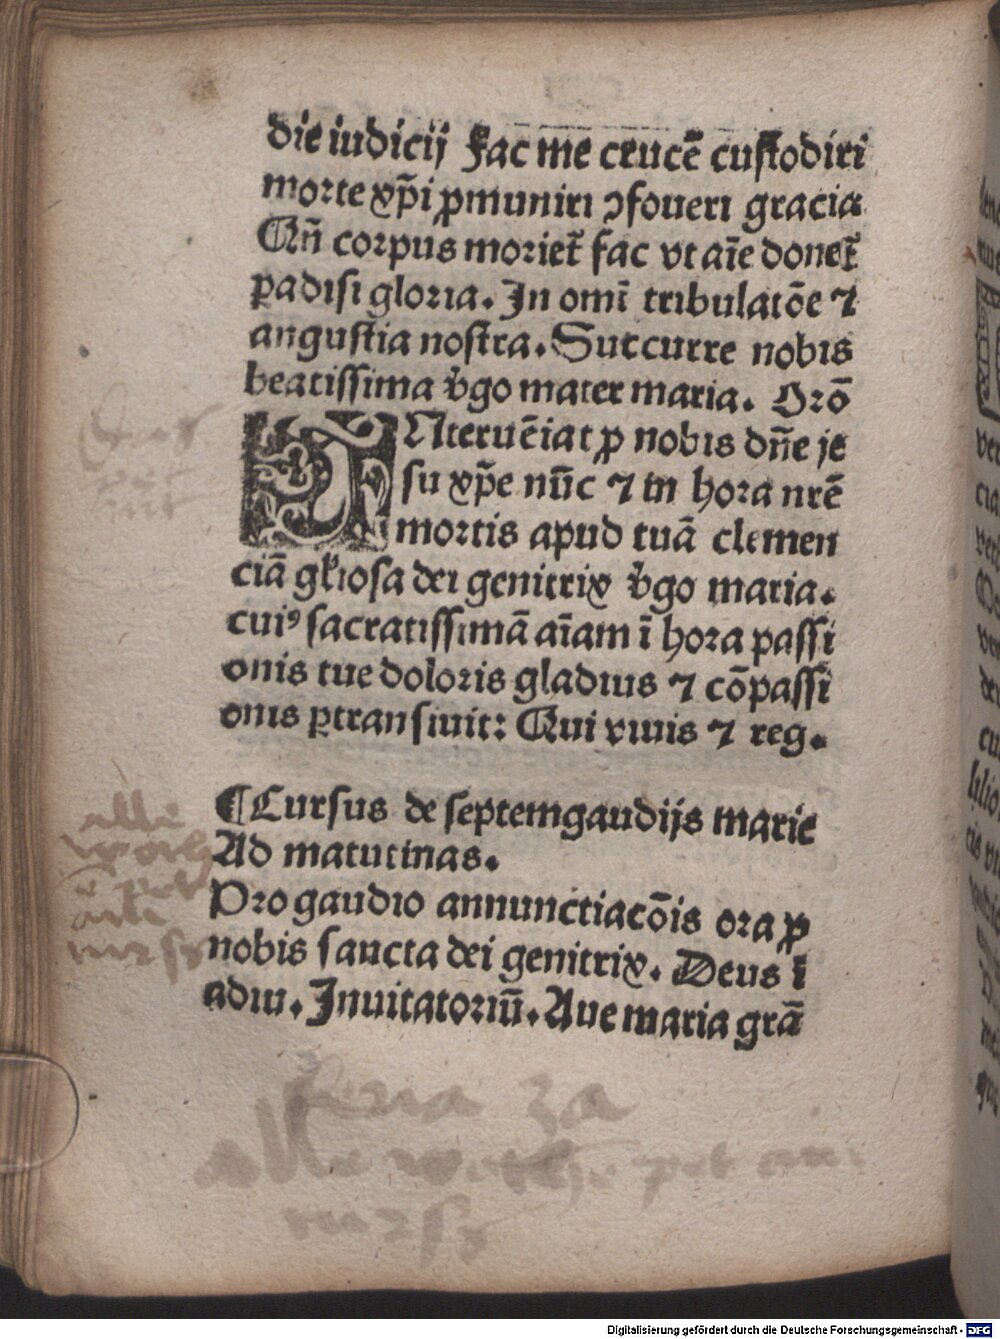 die iudicij Fac me crucē custodiri
morte xp̄i p̄muniri ꝯfoueri gracia
Qn̄ corpus moriet̄ fac vt aīe donet̄
ꝑadisi gloria. In omī tribulatōe ⁊
angustia nostra. Succurre nobis
beatissima v̓go mater maria. Orō
INteruēiat ꝓ nobis dn̄e ie
su xp̄e nūc ⁊ in hora nrē
mortis apud tuā clemen
ciā gl̓iosa dei genitrix v̓go maria.
cuiꝰ sacratissimā aīam ī hora passi
onis tue doloris gladius ⁊ cōpassi
onis ꝑtransiuit: Qui viuis ⁊ reg.
¶Cursus de septemgaudijs marie
Ad matutinas.
Pro gaudio annunctiacōis ora ꝓ
nobis sancta dei genitrix. Deus ī
adiu. Inuitatoriū. Aue maria grā
alle
feria 3a
alle
Digitalisierung gefördert durch die Deutsche Forschungsgemeinschaft - DFG